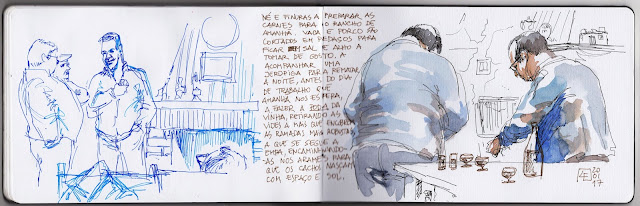 ZÉ E PINURAS A PREPARAR AS
CARNES PARA O RANCHO DE
AMANHÃ. VACA E PORCO SÃO
CORTADOS EM PEDAÇOS PARA
FICAR EM SAL E ALHO A
TOMAR DE GOSTO. A
ACOMPANHAR UMA
JEROPIGA PARA REMATAR
A NOITE, ANTES DO DIA
DE TRABALHO QUE
AMANHÃ NOS ESPERA,
A FAZER A PODA DA
VINHA, RETIRANDO AS
VIDES A MAIS QUE ENCHEM
AS RAMADAS MAIS
A QUE SE SEGUE A
EMPA, ENCAMINHANDO-
-AS NOS ARAMES, PARA
QUE OS CACHOS
COM ESPAÇO E SOL.
20
01
17